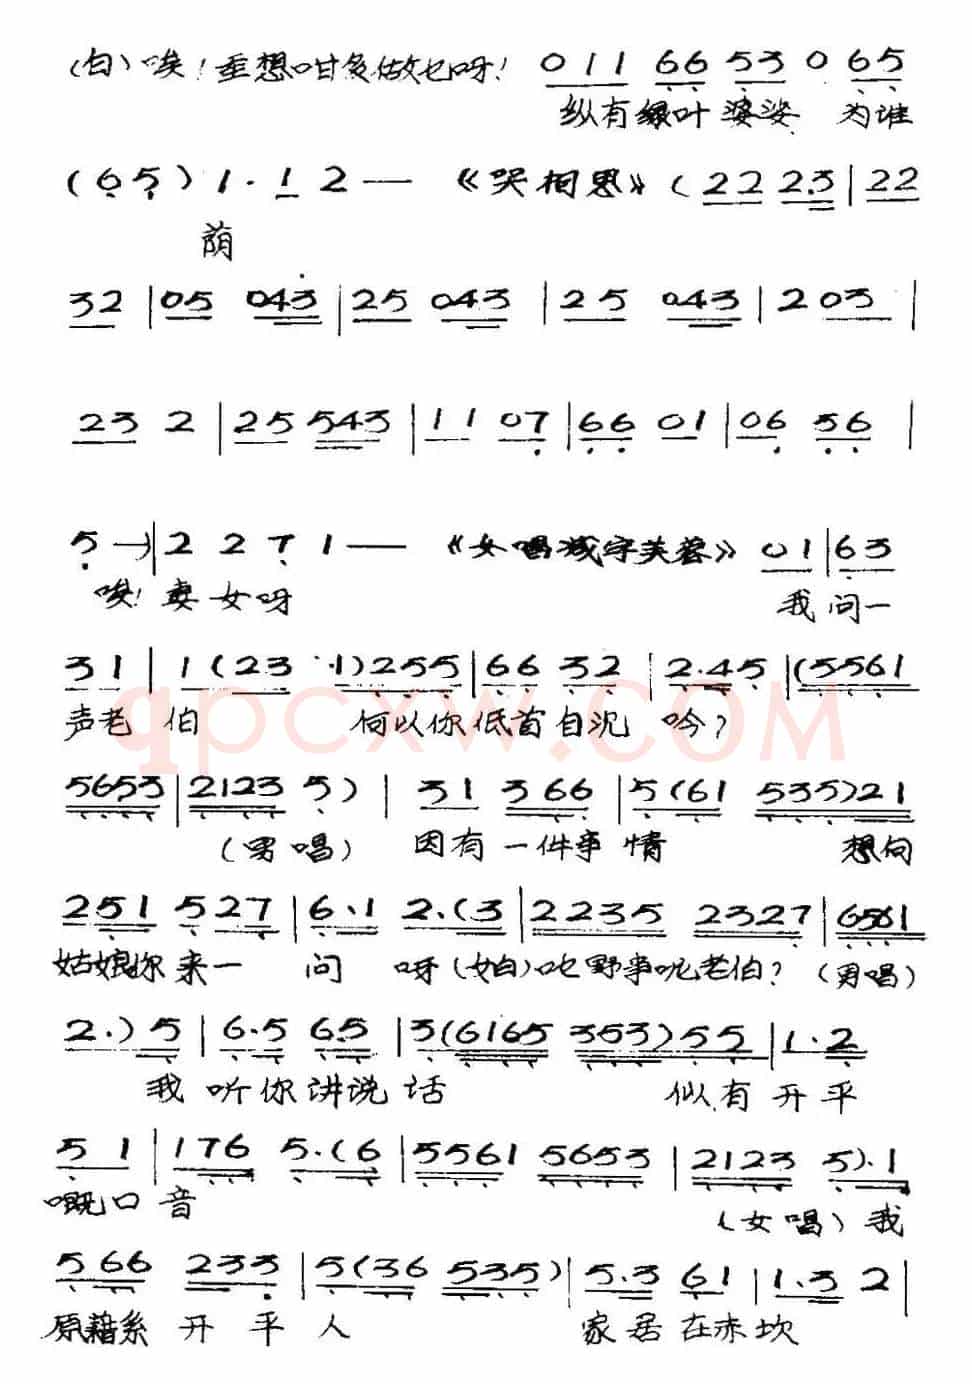 (白)唉！重想咁多做乜呀！ 0 1 1 6 6 5 3 0 6 5
纵有绿叶婆娑 为谁
(6 5) 1· 1 2 — 《哭相思》 (2 2 2·3 | 2 2
荫
3 2 | 0 5 0 4 3 | 2 5 0 4 3 | 2 5 0 4 3 | 2 0 3 |
2 3 2 | 2 5 5 4 3 | 1 1 0 7 | 6 6 0 1 | 0 6 5 6 |
5 —) | 2 2 7 1 — 《女唱减字芙蓉》 0 1 | 6 3
唉！妻女呀 我问一
3 1 | 1 (2 3 ·1) 2 5 5 | 6 6 3 2 | 2·4 5 | (5 5 6 1
声老伯 何以你低首自沉吟？
5 6 5 3 | 2 1 2 3 5) | 3 1 3 6 6 | 5 (6 1 5 3 5) 2 1
(男唱) 因有一件事情 想向
2 5 1 5 2 7 | 6·1 2·(3 | 2 2 3 5 2 3 2 7 | 6 5 6 1
姑娘你来一问呀(女白)乜野事呢老伯？(男唱)
2·) 5 | 6·5 6 5 | 3 (6 1 6 5 3 5 3) 5 5 | 1·2
我听你讲说话 似有开平
5 1 | 1 7 6 5·(6 | 5 5 6 1 5 6 5 3 | 2 1 2 3 5)·1
嘅口音 (女唱)我
5 6 6 2 3 3 | 5 (3 6 5 3 5) | 5·3 6 1 | 1·3 2 |
原籍系开平人 家居在赤坎
qpcxw.COM